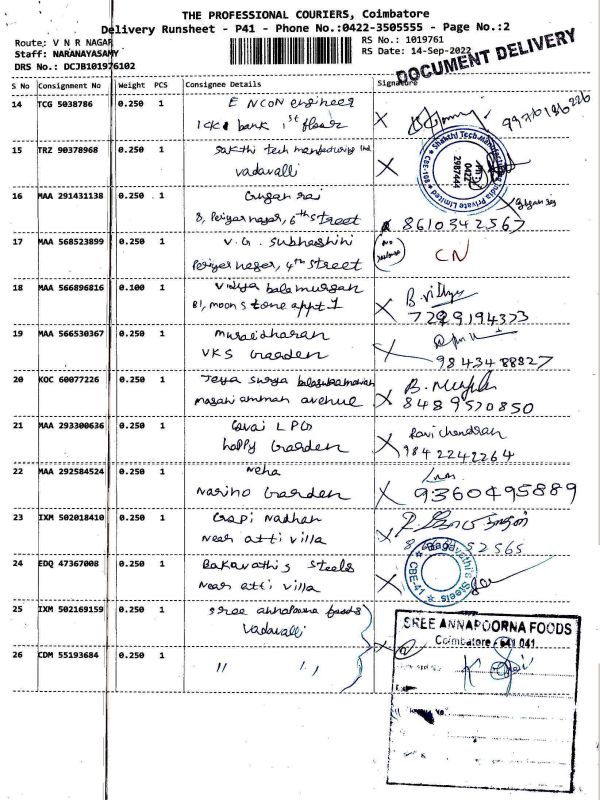 THE PROFESSIONAL COURIERS, Coimbatore
Delivery Runsheet - P41 - Phone No.:0422-3505555 - Page No.:2
Route: V N R NAGAR
Staff: NARANAYASAMY
DRS No.: DCJB101976102
RS No.: 1019761
RS Date: 14-Sep-2022
DOCUMENT DELIVERY
S No Consignment No Weight PCS Consignee Details Signature
14 TCG 5038786 0.250 1 ENCON engineer
bank 1st floor
15 TRZ 90378968 0.250 1 sakthi tech
vadavalli
Shakthi Tech Manufacturing India Private Limited
CBE-108
0422
2987444
16 MAA 291431138 0.250 1 Gugan raj
8, Periyar nagar, 6th street 8610342567
17 MAA 568523899 0.250 1 V.G. Subhashini
Periyar nagar, 4th street CN
18 MAA 566896816 0.100 1 vidya balamurgan B. Vidhya
81, moon stone appt 1 7299194373
19 MAA 566530367 0.250 1 muralidharan
VKS Garden 9843488827
20 KOC 60077226 0.250 1 Jeya surya balasubramanian
masani amman avenue 8489570850
21 MAA 293300636 0.250 1 Kovai LPG Ravichandran
happy Garden 9842242264
22 MAA 292584524 0.250 1 Neha
Narino Garden 9360495889
23 IXM 502018410 0.250 1 Gopi Nadhan
Near atti villa
24 EDQ 47367008 0.250 1 Bakavathi's steels
Near atti villa
Bagavathi's Steels
CBE-41
25 IXM 502169159 0.250 1 sree annapoorna foods
vadavalli
26 CDM 55193684 0.250 1 " "
SREE ANNAPOORNA FOODS
Coimbatore - 641 041.